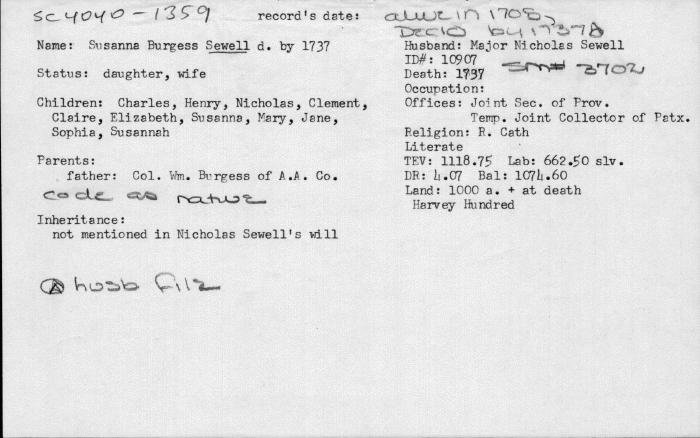 SC4040-1359
record's date: alive in 1708,
DEC'D by 1737
Name: Susanna Burgess Sewell d. by 1737
Status: daughter, wife
Children: Charles, Henry, Nicholas, Clement,
Claire, Elizabeth, Susanna, Mary, Jane,
Sophia, Susannah
Parents:
father: Col. Wm. Burgess of A.A. Co.
code as native
Inheritance:
not mentioned in Nicholas Sewell's will
husb file
Husband: Major Nicholas Sewell
ID#: 10907
SM# 3702
Death: 1737
Occupation:
Offices: Joint Sec. of Prov.
Temp. Joint Collector of Patx.
Religion: R. Cath
Literate
TEV: 1118.75 Lab: 662.50 slv.
DR: 4.07 Bal: 1074.60
Land: 1000 a. + at death
Harvey Hundred